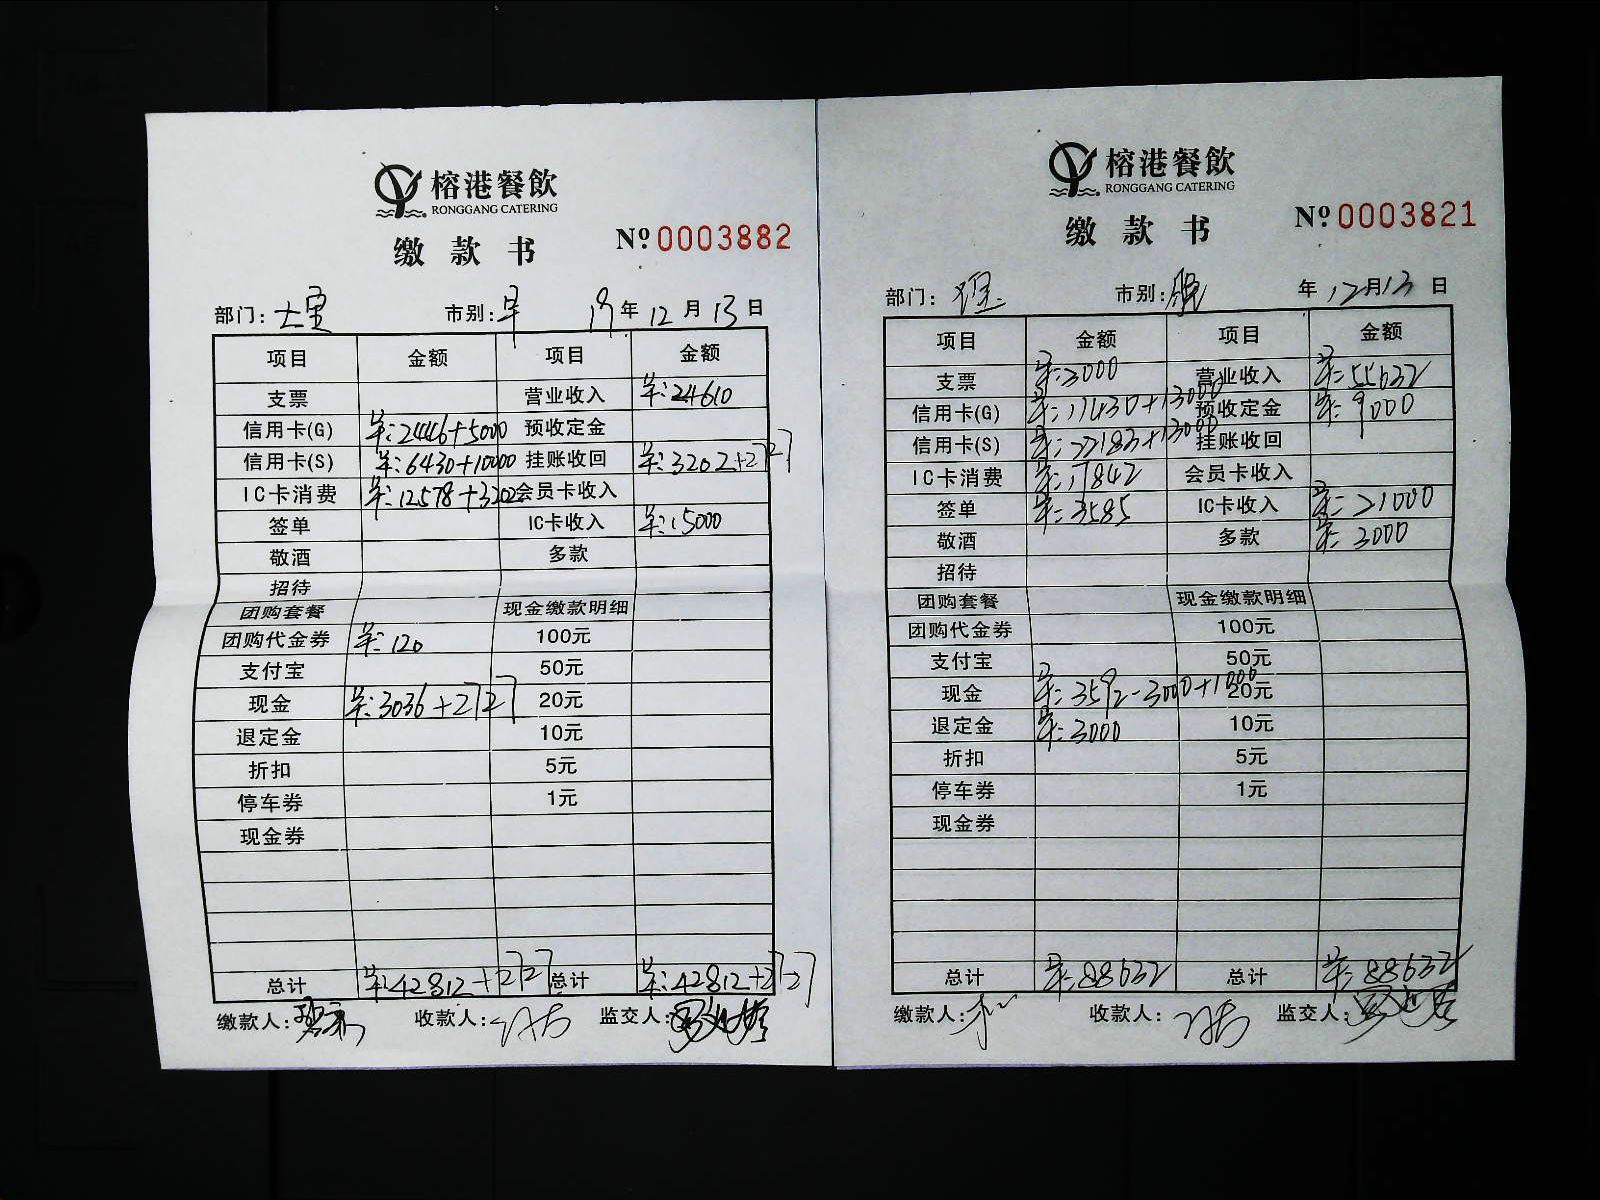 榕港餐飲
RONGGANG CATERING
缴款书
№ 0003882
部门: 市别:早 19年12月13日
项目 金额 项目 金额
支票 营业收入 ¥:24610
信用卡(G) ¥:2446+5000 预收定金
信用卡(S) ¥:6430+10000 挂账收回 ¥:3202+2727
IC卡消费 ¥:12578+3202 会员卡收入
签单 IC卡收入 ¥:15000
敬酒 多款
招待
团购套餐 现金缴款明细
团购代金券 ¥:120 100元
支付宝 50元
现金 ¥:3036+2727 20元
退定金 10元
折扣 5元
停车券 1元
现金券
总计 ¥:42812+2727 总计 ¥:42812+2727
缴款人: 收款人: 监交人:
榕港餐飲
RONGGANG CATERING
缴款书
№ 0003821
部门: 市别: 年12月13日
项目 金额 项目 金额
支票 ¥:3000 营业收入 ¥:55632
信用卡(G) ¥:11430+13000 预收定金 ¥:9000
信用卡(S) ¥:22183+13000 挂账收回
IC卡消费 ¥:17842 会员卡收入
签单 ¥:3585 IC卡收入 ¥:21000
敬酒 多款 ¥:3000
招待
团购套餐 现金缴款明细
团购代金券 100元
支付宝 50元
现金 ¥:3592-3000+1000 20元
退定金 ¥:3000 10元
折扣 5元
停车券 1元
现金券
总计 ¥:88632 总计 ¥:88632
缴款人: 收款人: 监交人: